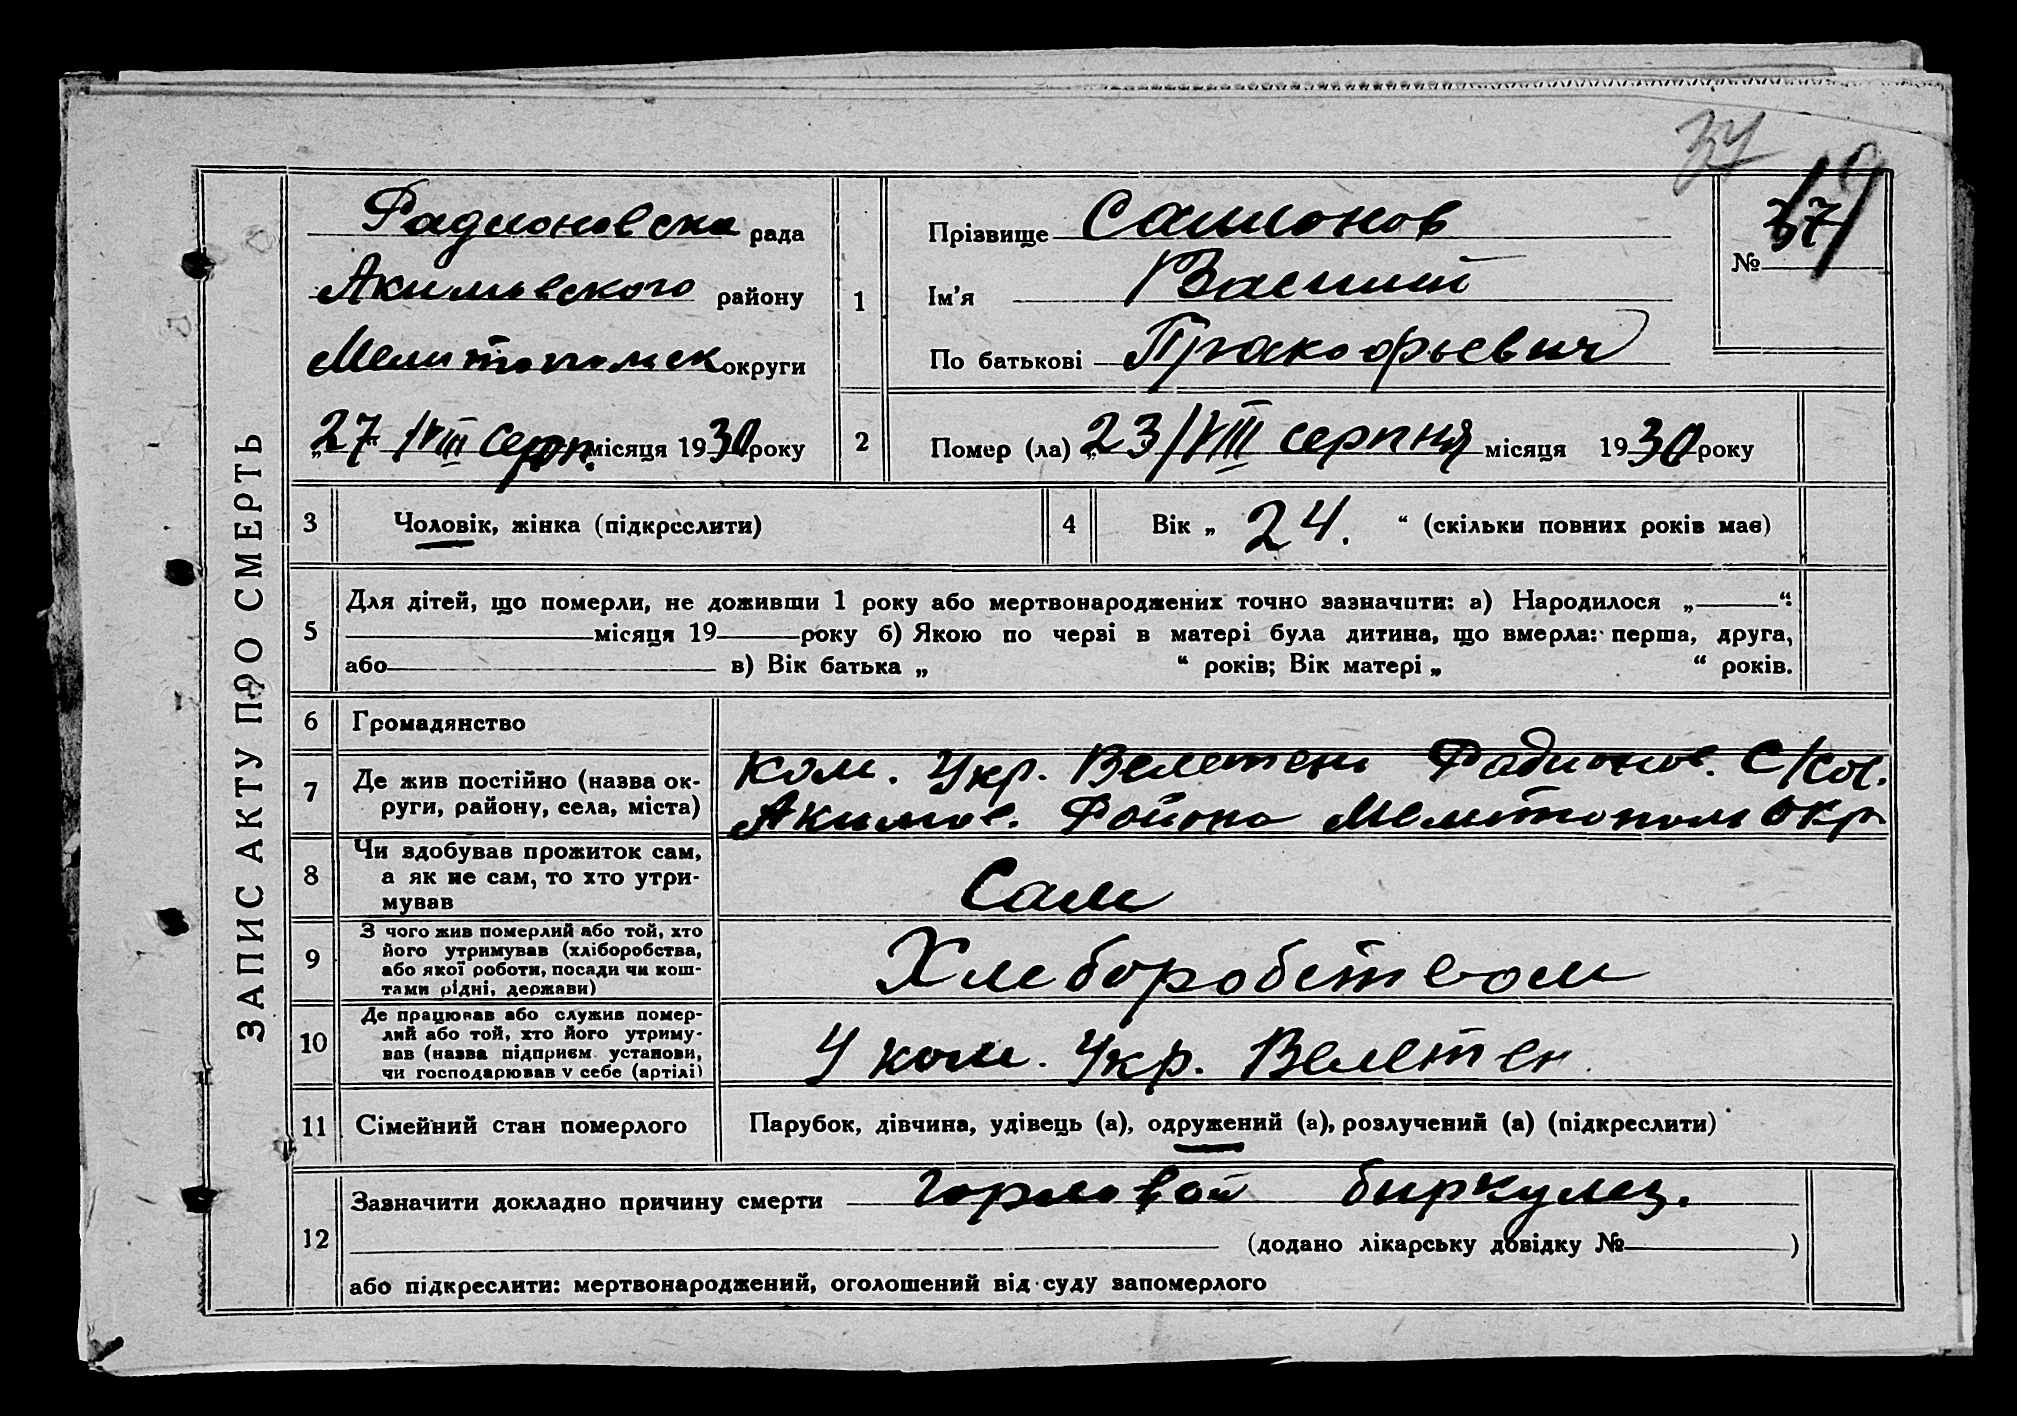 37
ЗАПИС АКТУ ПРО СМЕРТЬ
Радионовска рада
Акимовского району
Мелитопольск округи
„27“ /VIII серпн. місяця 1930 року
1
Прізвище Самсонов
Ім’я Василий
По батькові Пракофьевич
№ 37
2
Помер (ла) „23/VIII серпня місяця 1930 року
3
Чоловік, жінка (підкреслити)
4
Вік „ 24. “ (скільки повних років має)
5
Для дітей, що померли, не доживши 1 року або мертвонароджених точно зазначити: а) Народилося „ “
місяця 19 року б) Якою по черзі в матері була дитина, що вмерла: перша, друга,
або в) Вік батька „ “ років; Вік матері „ “ років.
6
Громадянство
7
Де жив постійно (назва ок-
руги, району, села, міста)
Ком. Укр. Велетень Радионов. С/сов.
Акимов. Района Мелитополь Окр
8
Чи здобував прожиток сам,
а як не сам, то хто утри-
мував
Сам
9
З чого жив померлий або той, хто
його утримував (хліборобства,
або якої роботи, посади чи кош-
тами рідні, держави)
Хлеборобством
10
Де працював або служив помер-
лий або той, хто його утриму-
вав (назва підприєм. установи,
чи господарював у себе (артілі)
У ком. Укр. Велетен
11
Сімейний стан померлого
Парубок, дівчина, удівець (а), одружений (а), розлучений (а) (підкреслити)
12
Зазначити докладно причину смерти горловой биркулез.
(додано лікарську довідку № )
або підкреслити: мертвонароджений, оголошений від суду запомерлого